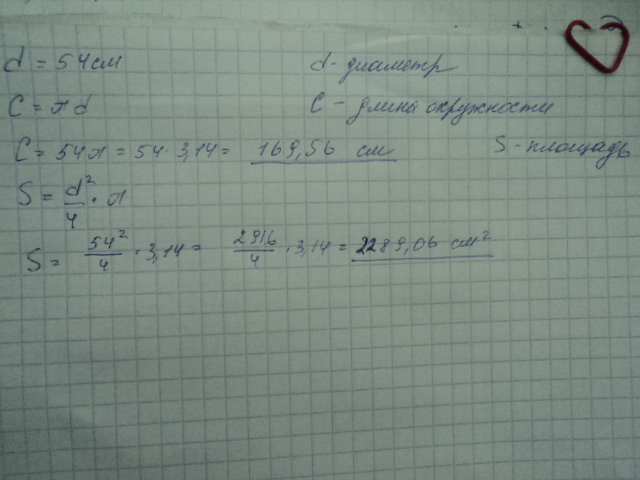 d = 54 см d - диаметр
C = πd C - длина окружности
C = 54π = 54 · 3,14 = 169,56 см S - площадь
S = d²/4 · π
S = 54²/4 · 3,14 = 2916/4 · 3,14 = 2289,06 см²